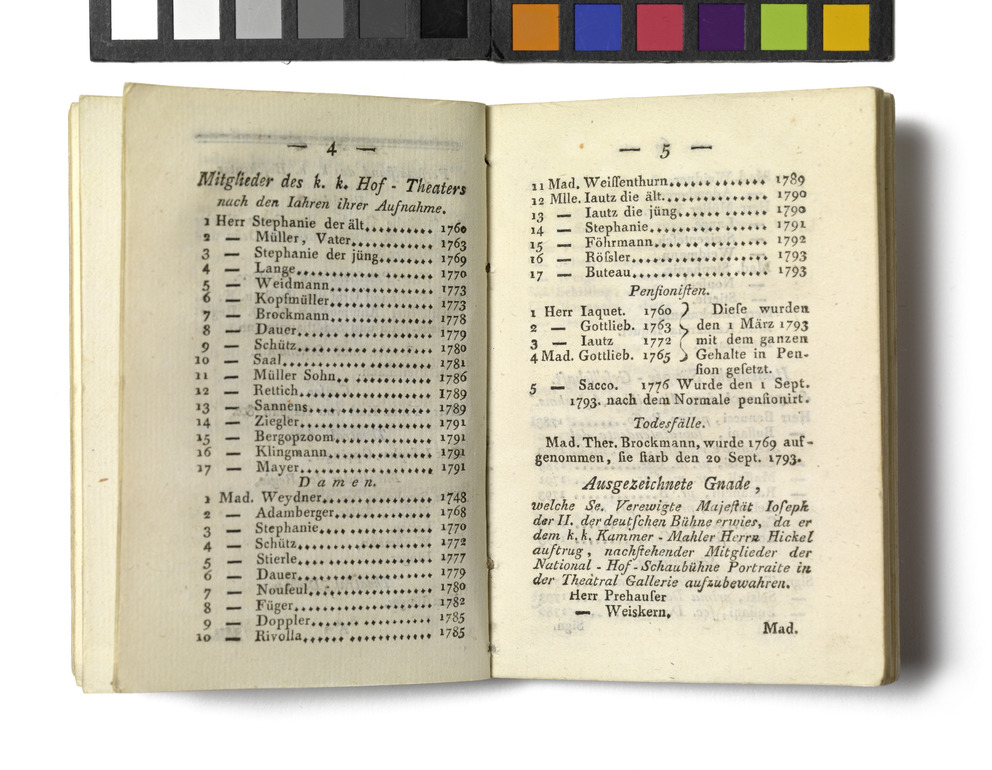 — 4 —
Mitglieder des k. k. Hof - Theaters
nach den Iahren ihrer Aufnahme.
1 Herr Stephanie der ält. 1760
2 — Müller, Vater 1763
3 — Stephanie der jüng. 1769
4 — Lange 1770
5 — Weidmann 1773
6 — Kopfmüller 1773
7 — Brockmann 1778
8 — Dauer 1779
9 — Schütz 1780
10 — Saal 1781
11 — Müller Sohn 1786
12 — Rettich 1789
13 — Sannens 1789
14 — Ziegler 1791
15 — Bergopzoom 1791
16 — Klingmann 1791
17 — Mayer 1791
Damen.
1 Mad. Weydner 1748
2 — Adamberger 1768
3 — Stephanie 1770
4 — Schütz 1772
5 — Stierle 1777
6 — Dauer 1779
7 — Noufeul 1780
8 — Füger 1782
9 — Doppler 1785
10 — Rivolla 1785
— 5 —
11 Mad. Weiſſenthurn 1789
12 Mlle. Iautz die ält. 1790
13 — Iautz die jüng. 1790
14 — Stephanie 1791
15 — Föhrmann 1792
16 — Röſsler 1793
17 — Buteau 1793
Penſioniſten.
1 Herr Iaquet. 1760 } Dieſe wurden
2 — Gottlieb. 1763 den 1 März 1793
3 — Iautz 1772 mit dem ganzen
4 Mad. Gottlieb. 1765 Gehalte in Pen-
ſion geſetzt.
5 — Sacco. 1776 Wurde den 1 Sept.
1793. nach dem Normale penſionirt.
Todesfälle.
Mad. Ther. Brockmann, wurde 1769 auf-
genommen, ſie ſtarb den 20 Sept. 1793.
Ausgezeichnete Gnade,
welche Se. Verewigte Majeſtät Ioſeph
der II. der deutſchen Bühne erwies, da er
dem k. k. Kammer - Mahler Herrn Hickel
auftrug, nachſtehender Mitglieder der
National - Hof - Schaubühne Portraite in
der Theatral Gallerie aufzubewahren.
Herr Prehauſer
— Weiskern.
Mad.